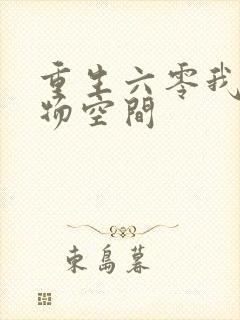 重生六零我
物空間
東島暮